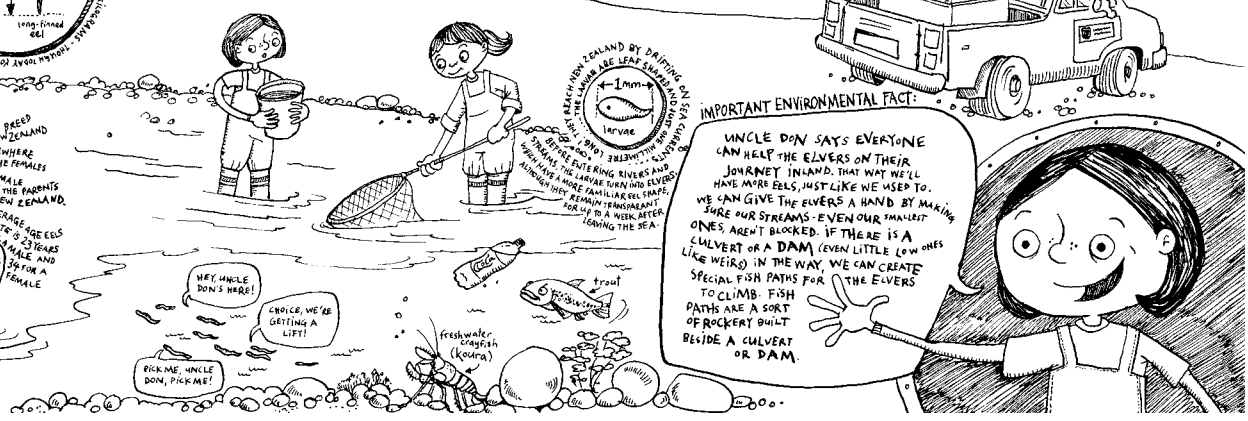 long-finned
eel
BREED
W ZEALAND
WHERE
HE FEMALES
MALE
THE PARENTS
EW ZEALAND.
ERAGE AGE EELS
TE IS 23 YEARS
A MALE AND
34 FOR A
FEMALE
THEY REACH NEW ZEALAND BY DRIFTING ON SEA CURRENTS.
THE LARVAE ARE LEAF SHAPED AND JUST ONE MILLIMETRE LONG.
1mm
larvae
BEFORE ENTERING RIVERS AND
STREAMS THE LARVAE TURN INTO ELVERS,
WHICH HAVE A MORE FAMILIAR EEL SHAPE,
ALTHOUGH THEY REMAIN TRANSPARENT
FOR UP TO A WEEK AFTER
LEAVING THE SEA.
HEY, UNCLE
DON'S HERE!
CHOICE, WE'RE
GETTING A
LIFT!
PICK ME, UNCLE
DON, PICK ME!
trout
freshwater
crayfish
(koura)
IMPORTANT ENVIRONMENTAL FACT:
UNCLE DON SAYS EVERYONE
CAN HELP THE ELVERS ON THEIR
JOURNEY INLAND. THAT WAY WE'LL
HAVE MORE EELS, JUST LIKE WE USED TO.
WE CAN GIVE THE ELVERS A HAND BY MAKING
SURE OUR STREAMS - EVEN OUR SMALLEST
ONES, AREN'T BLOCKED. IF THERE IS A
CULVERT OR A DAM (EVEN LITTLE LOW ONES
LIKE WEIRS) IN THE WAY, WE CAN CREATE
SPECIAL FISH PATHS FOR THE ELVERS
TO CLIMB. FISH
PATHS ARE A SORT
OF ROCKERY BUILT
BESIDE A CULVERT
OR DAM.